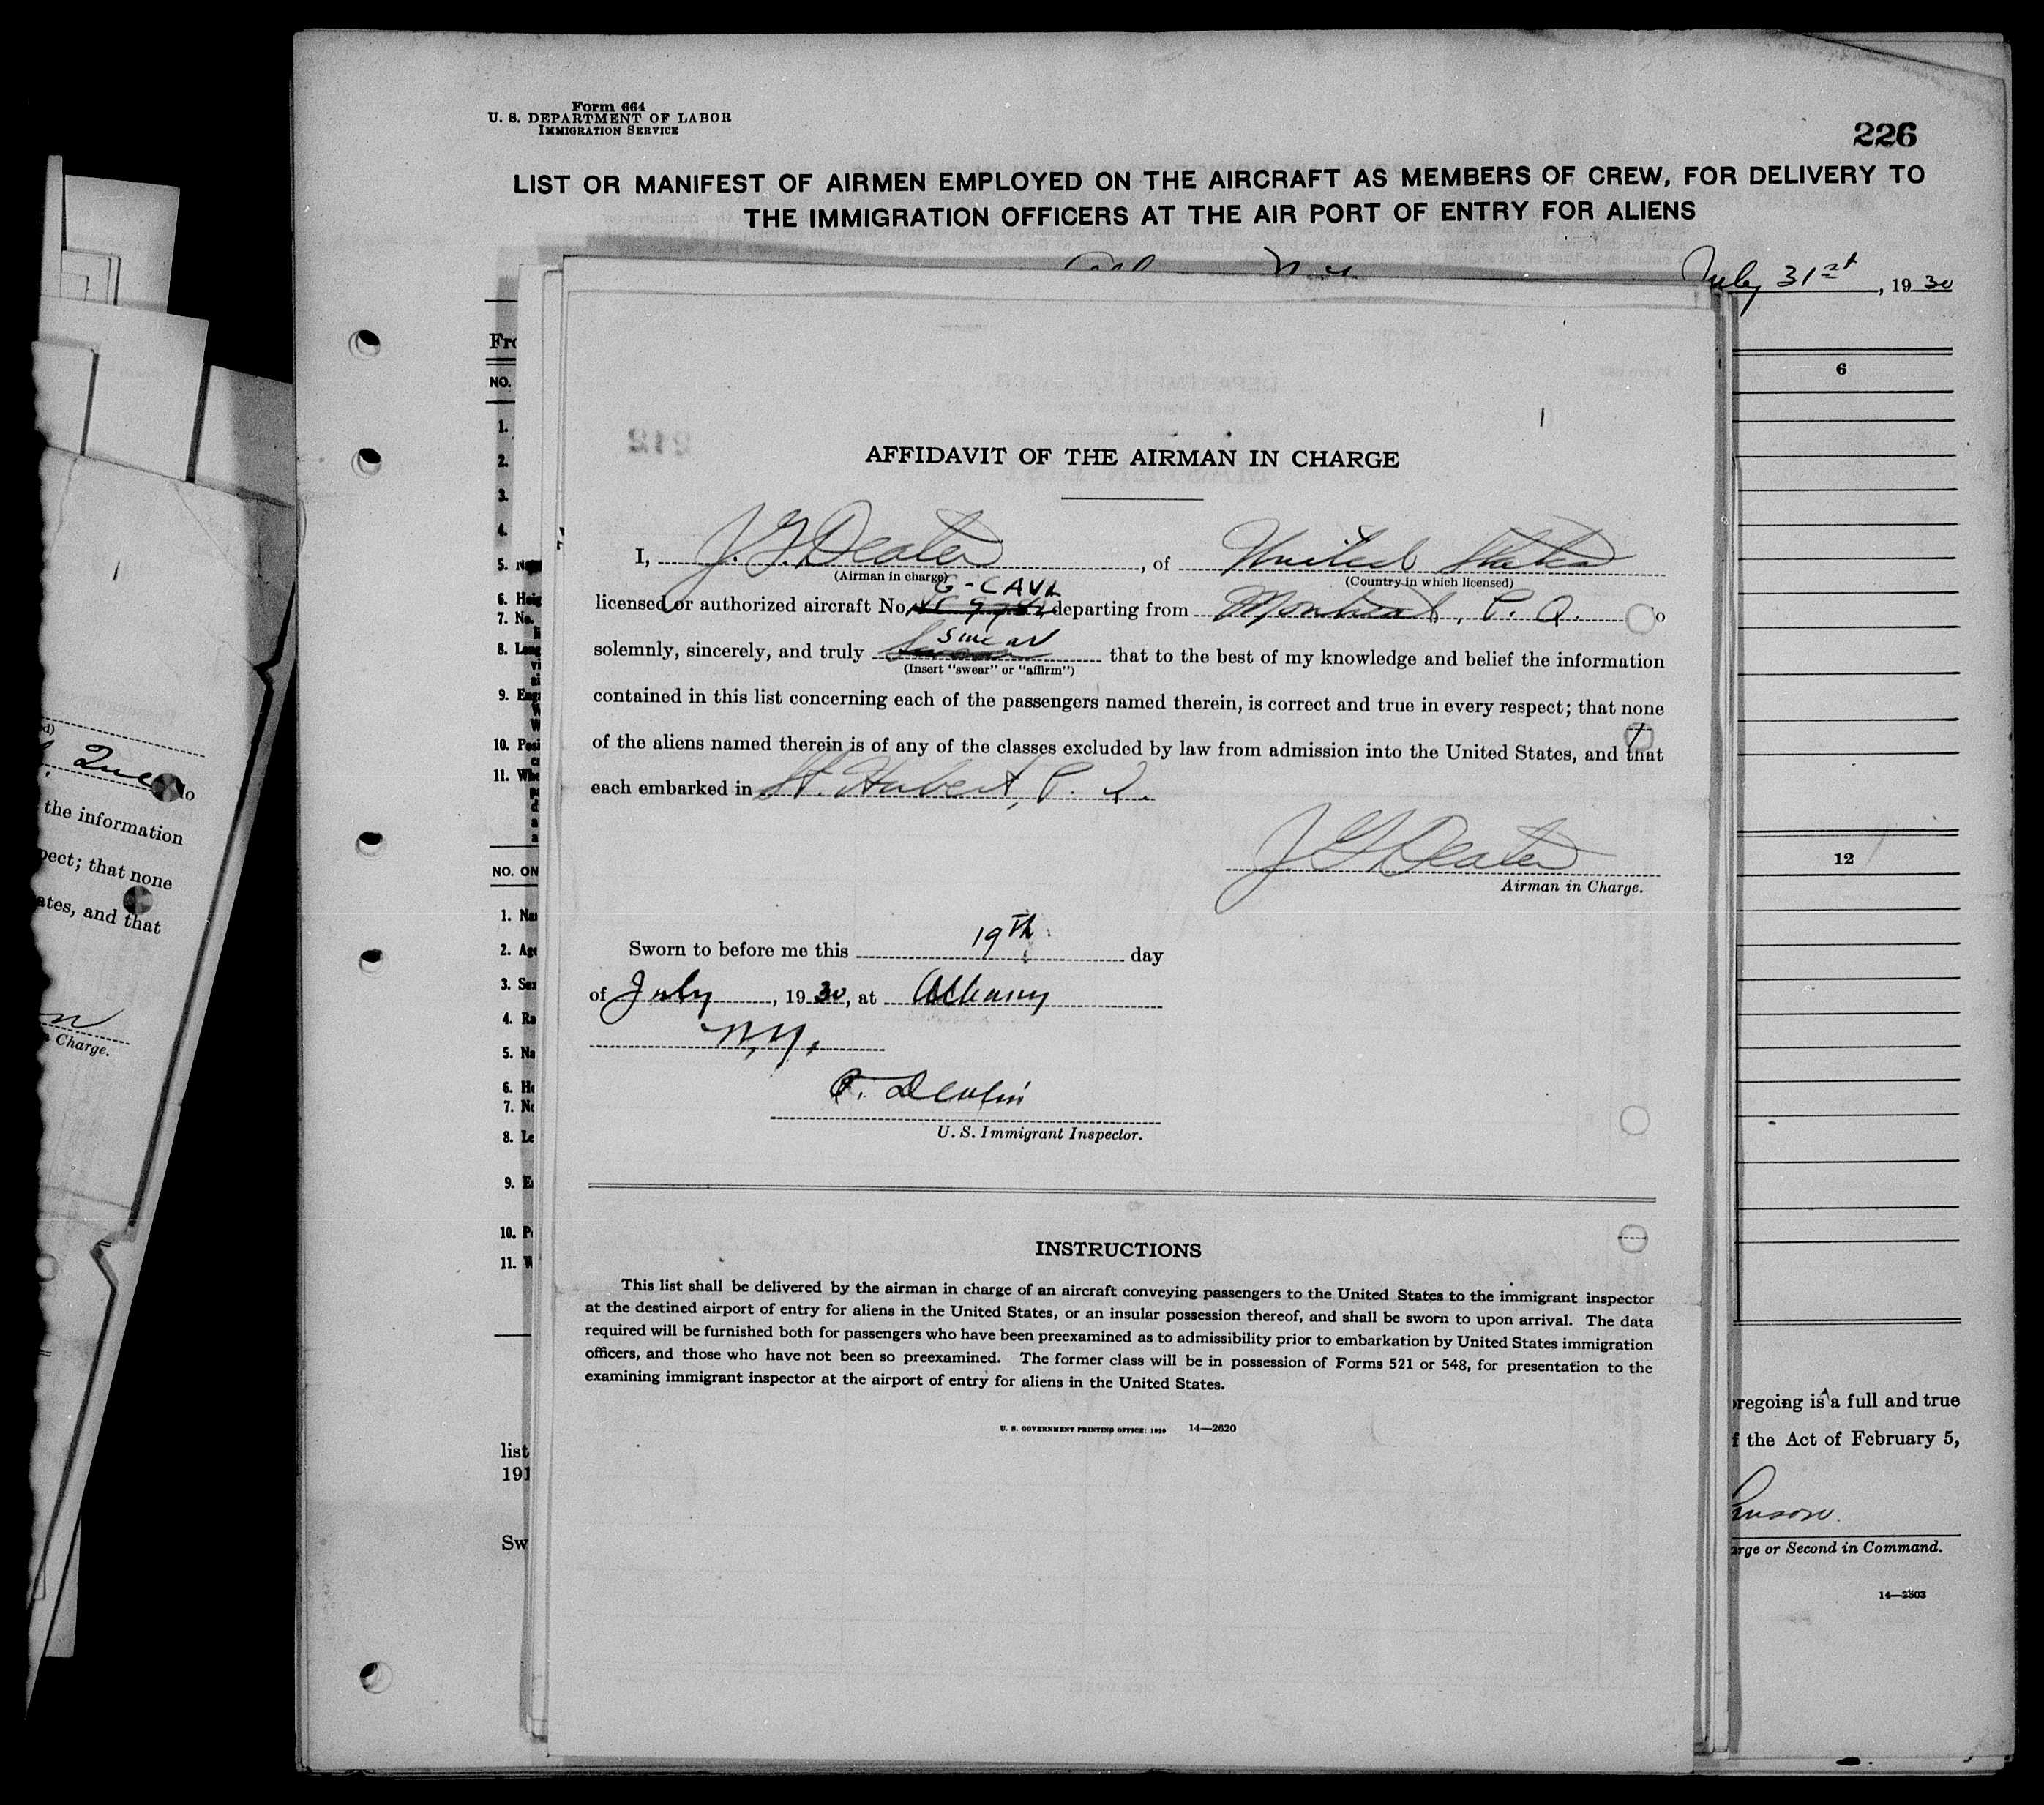 Form 664
U. S. DEPARTMENT OF LABOR
IMMIGRATION SERVICE
226
LIST OR MANIFEST OF AIRMEN EMPLOYED ON THE AIRCRAFT AS MEMBERS OF CREW, FOR DELIVERY TO
THE IMMIGRATION OFFICERS AT THE AIR PORT OF ENTRY FOR ALIENS
July 31st, 1930
NO.
6
1.
2.
3.
4.
5.
6.
7. No.
8.
9.
10.
11.
12
NO. ON
1.
2.
3.
4.
5.
6.
7.
8.
9.
10.
11.
list
191
oregoing is a full and true
f the Act of February 5,
arge or Second in Command.
14—2303
AFFIDAVIT OF THE AIRMAN IN CHARGE
I, J. G. Deater, of United States
(Airman in charge) (Country in which licensed)
G-CAVL
licensed or authorized aircraft No. departing from Montreal, P. Q. o
solemnly, sincerely, and truly swear that to the best of my knowledge and belief the information
(Insert "swear" or "affirm")
contained in this list concerning each of the passengers named therein, is correct and true in every respect; that none
of the aliens named therein is of any of the classes excluded by law from admission into the United States, and that
each embarked in St. Hubert, P. Q.
J G Deater
Airman in Charge.
Sworn to before me this 19th day
of July, 1930, at Albany
N.Y.
Devlin
U. S. Immigrant Inspector.
INSTRUCTIONS
This list shall be delivered by the airman in charge of an aircraft conveying passengers to the United States to the immigrant inspector
at the destined airport of entry for aliens in the United States, or an insular possession thereof, and shall be sworn to upon arrival. The data
required will be furnished both for passengers who have been preexamined as to admissibility prior to embarkation by United States immigration
officers, and those who have not been so preexamined. The former class will be in possession of Forms 521 or 548, for presentation to the
examining immigrant inspector at the airport of entry for aliens in the United States.
U. S. GOVERNMENT PRINTING OFFICE: 1929 14—2620
Que
the information
pect; that none
ates, and that
Charge.